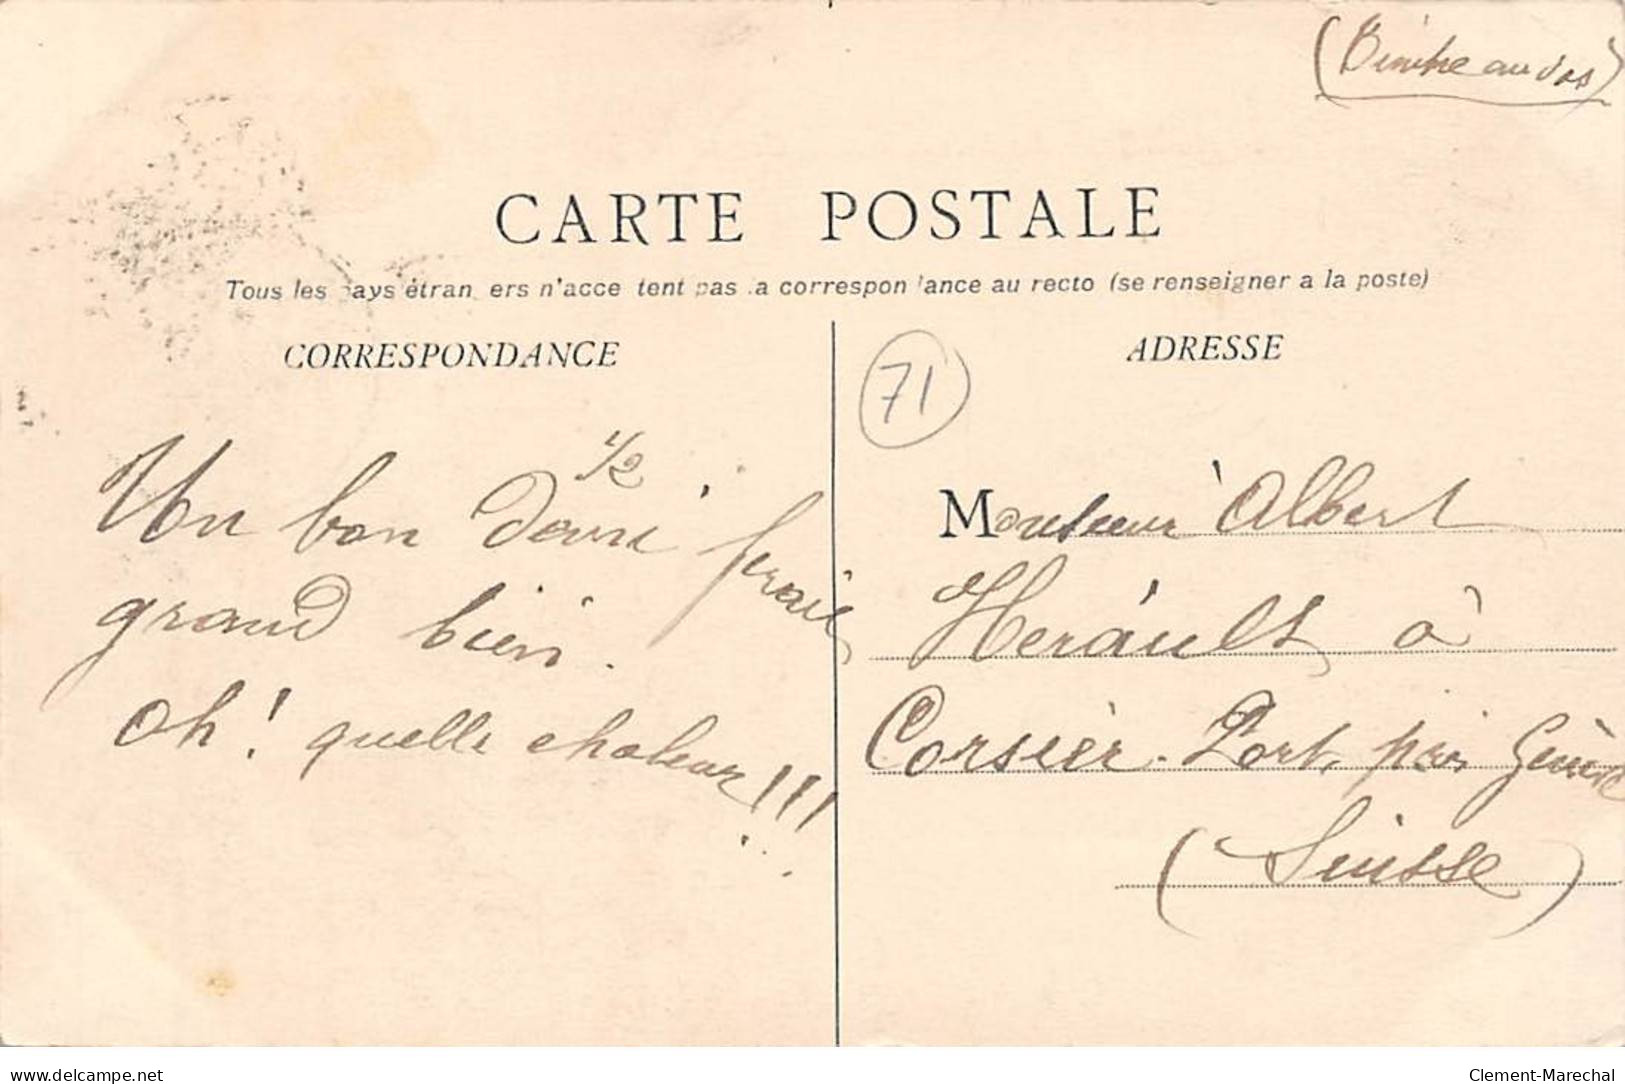 (Timbre au dos)
CARTE POSTALE
Tous les pays étran ers n'acce tent pas la correspon ance au recto (se renseigner a la poste)
CORRESPONDANCE
ADRESSE
71
1/2
Un bon demi ferait
grand bien.
Oh! quelle chaleur!!!
Monsieur Albert
Herault à
Corsier-Port, près Genève
(Suisse)
delcampe.net
Clement-Marechal